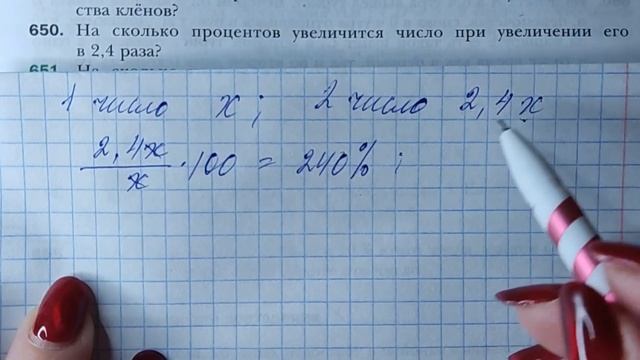 ства клёнов?
650. На сколько процентов увеличится число при увеличении его
в 2,4 раза?
651. На сколько
1 число х; 2 число 2,4х
2,4х
/ х · 100 = 240% ;